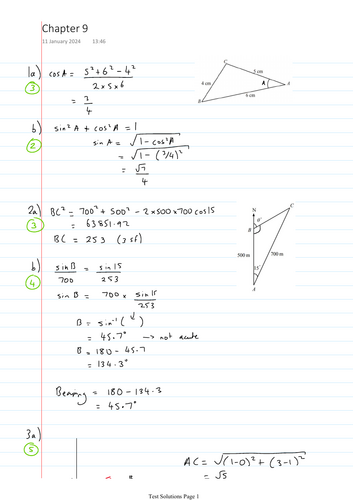 Chapter 9
11 January 2024 13:46
1a) cosA = (5² + 6² - 4²)/(2 x 5 x 6)
3
= 3/4
C
5 cm
4 cm
A
A
6 cm
B
b) sin²A + cos²A = 1
2
sin A = √(1 - cos²A)
= √(1 - (3/4)²)
= √7/4
2a) BC² = 700² + 500² - 2x500x700cos15
3
= 63851.92
BC = 253 (3sf)
N
C
θ°
B
500 m
700 m
15°
A
b) sinB/700 = sin15/253
4
sin B = 700 x sin15/253
B = sin⁻¹(↓)
= 45.7° → not acute
B = 180 - 45.7
= 134.3°
Bearing = 180 - 134.3
= 45.7°
3a)
5
AC = √((1-0)² + (3-1)²)
= √5
Test Solutions Page 1